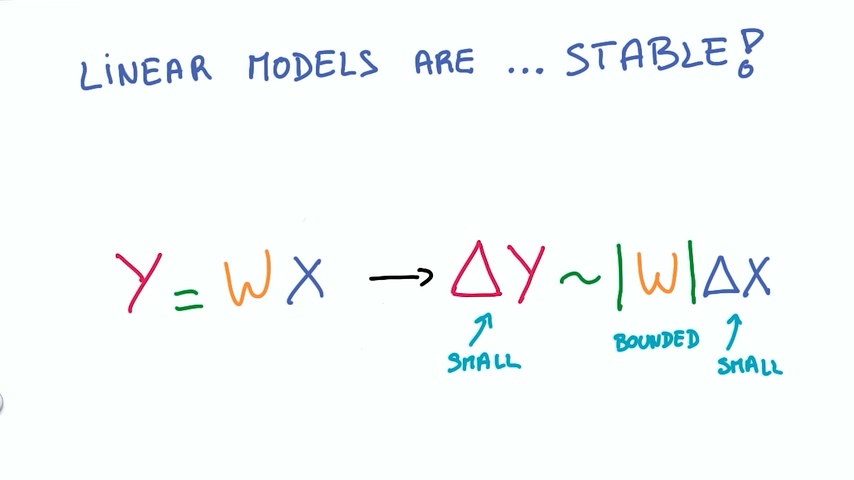 LiNEAR MODELS ARE ... STABLE!
Y = W X → ΔY ~ |W| ΔX
SMALL BOUNDED SMALL